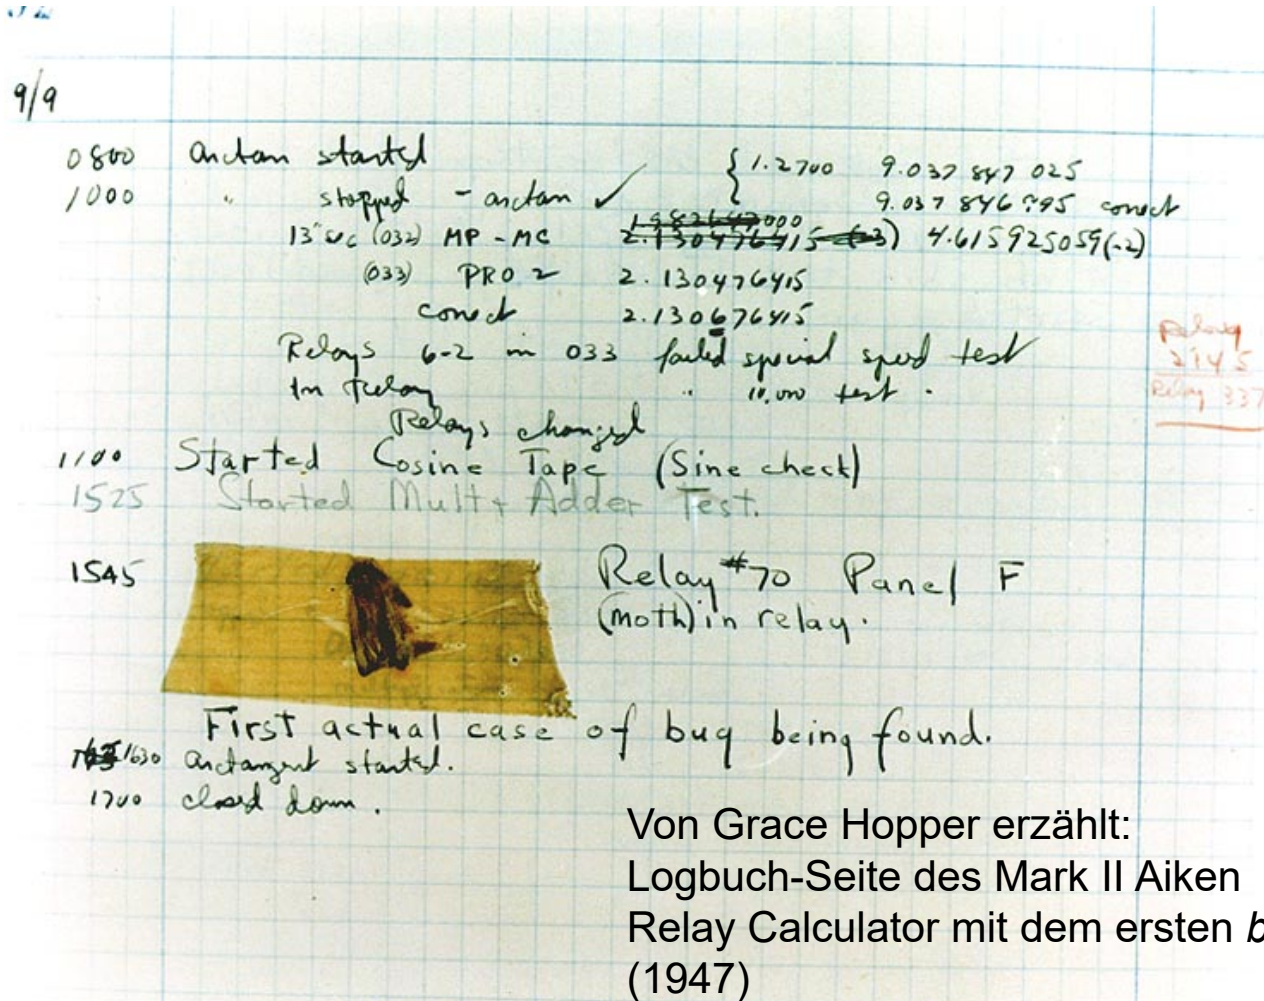 9/9
0800 arctan started { 1.2700 9.037 847 025
1000 " stopped - arctan ✓ 9.037 846 995 correct
13" uc (032) MP - MC 1.982647000 2.130476415 (-3) 4.615925059(-2)
(033) PRO 2 2.130476415
correct 2.130676415
Relays 6-2 in 033 failed special speed test
In Relay " 10,000 test .
Relays changed
Relay
2145
Relay 337
1100 Started Cosine Tape (Sine check)
1525 Started Mult + Adder Test.
1545 Relay #70 Panel F
(moth) in relay.
First actual case of bug being found.
1630 arctangent started.
1700 closed down .
Von Grace Hopper erzählt:
Logbuch-Seite des Mark II Aiken
Relay Calculator mit dem ersten b
(1947)